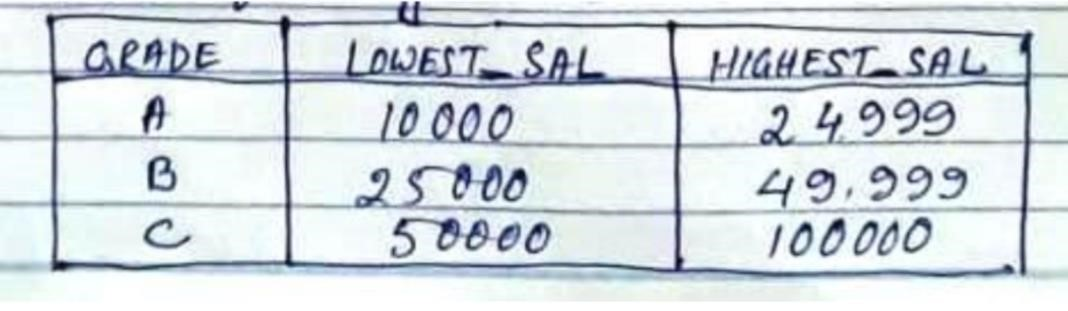 GRADE LOWEST_SAL HIGHEST_SAL
A 10000 24999
B 25000 49.999
C 50000 100000